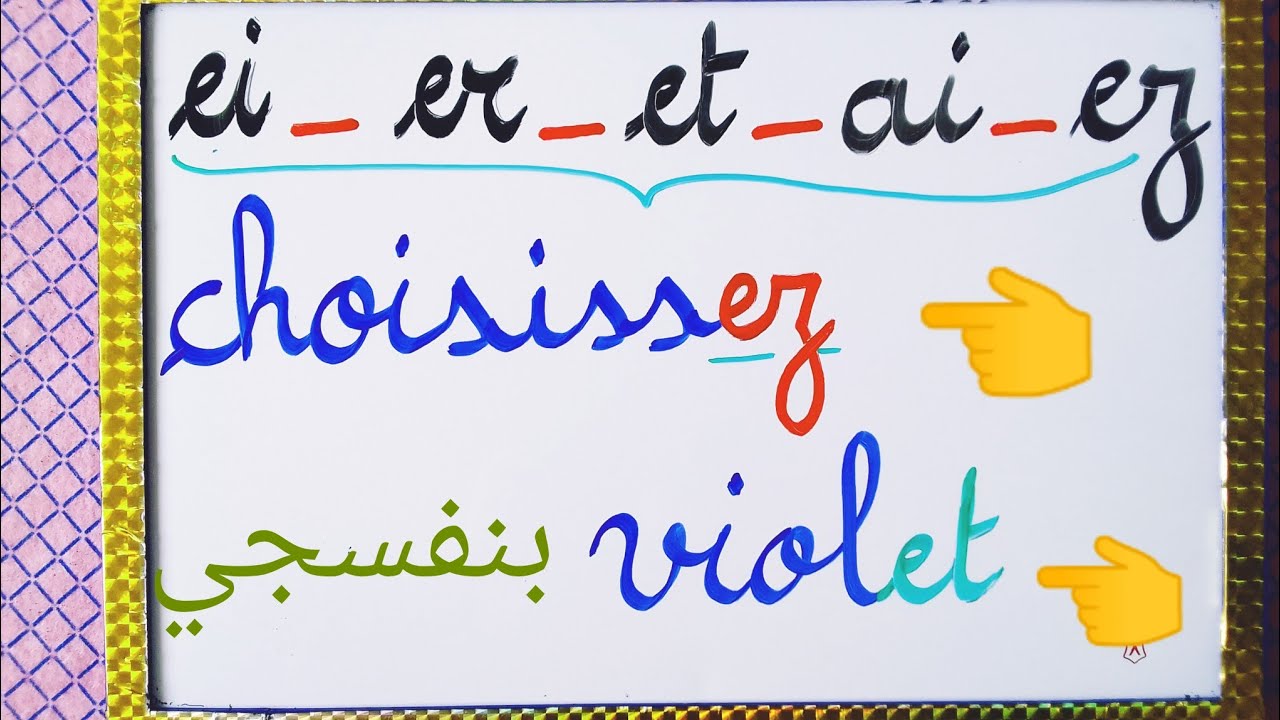 ei _ er _ et _ ai _ ez
choisissez
violet بنفسجي